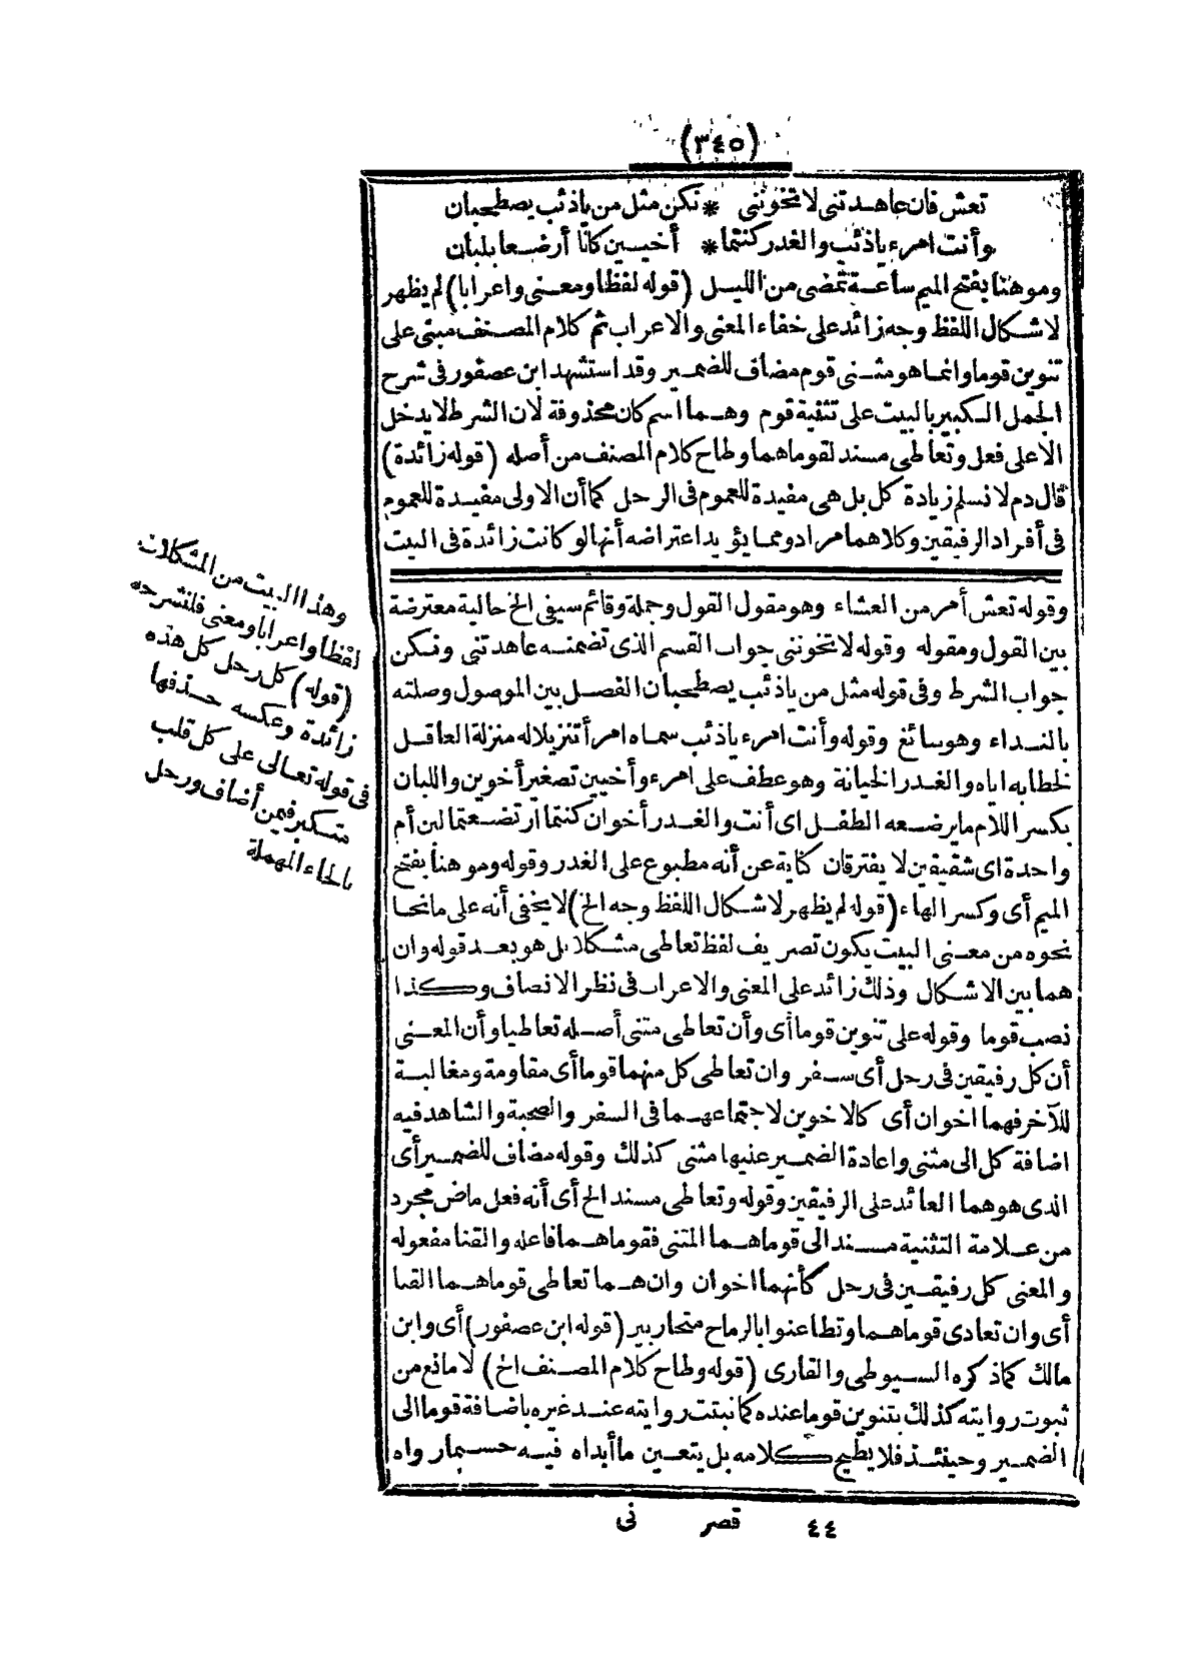 (٣٤٥)
تعش فان عاهدتنى لاتخوننى * نكن مثل من ياذئب يصطحبان
وأنت امرء ياذئب والغدر كنتما * أخيين كانا أرضعا بلبان
وموهنا بفتح الميم ساعة تمضى من الليل (قوله لفظا ومعنى واعرابا) لم يظهر
لاشكال اللفظ وجه زائد على خفاء المعنى والاعراب ثم كلام المصنف مبنى على
تنوين قوما وانما هو مثنى قوم مضاف للضمير وقد استشهد ابن عصفور فى شرح
الجمل الكبير بالبيت على تثنية قوم وهما اسم كان محذوفة لان الشرط لايدخل
الاعلى فعل وتعاطى مسند لقوماهما وطاح كلام المصنف من أصله (قوله زائدة)
قال دم لانسلم زيادة كل بل هى مفيدة للعموم فى الرحل كماأن الاولى مفيدة للعموم
فى أفراد الرفيقين وكلاهما مراد ومما يؤيد اعتراضه أنها لو كانت زائدة فى البيت
وقوله تعش أمر من العشاء وهو مقول القول وجملة وقائم سيفى الخ حالية معترضة
بين القول ومقوله وقوله لاتخوننى جواب القسم الذى تضمنه عاهدتنى ونكن
جواب الشرط وفى قوله مثل من ياذئب يصطحبان الفصل بين الموصول وصلته
بالنداء وهو سائغ وقوله وأنت امرء ياذئب سماه امرأ تنزيلا له منزلة العاقل
لخطابه اياه والغدر الخيانة وهو عطف على امرء وأخيين تصغير أخوين واللبان
بكسر اللام مايرضعه الطفل اى أنت والغدر أخوان كنتما ارتضعتما لبن أم
واحدة اى شقيقين لا يفترقان كناية عن أنه مطبوع على الغدر وقوله وموهنا بفتح
الميم أى وكسر الهاء (قوله لم يظهر لاشكال اللفظ وجه الخ) لايخفى أنه على مانحا
نحوه من معنى البيت يكون تصريف لفظ تعاطى مشكلا بل هو بعد قوله وان
هما بين الاشكال وذلك زائد على المعنى والاعراب فى نظر الانصاف وكذا
نصب قوما وقوله على تنوين قوما أى وأن تعاطى مثنى أصله تعاطيا وأن المعنى
أن كل رفيقين فى رحل أى سفر وان تعاطى كل منهما قوما أى مقاومة ومغالبة
للآخر فهما اخوان أى كالاخوين لاجتماعهما فى السفر والصحبة والشاهد فيه
اضافة كل الى مثنى واعادة الضمير عليها مثنى كذلك وقوله مضاف للضمير أى
الذى هو هما العائد على الرفيقين وقوله وتعاطى مسند الخ أى أنه فعل ماض مجرد
من علامة التثنية مسند الى قوماهما المثنى فقوماهما فاعله والقنا مفعوله
والمعنى كل رفيقين فى رحل كأنهما اخوان وان هما تعاطى قوماهما القنا
أى وان تعادى قوماهما وتطاعنوا بالرماح متحاربين (قوله ابن عصفور) أى وابن
مالك كماذكره السيوطى والقارى (قوله وطاح كلام المصنف الخ) لامانع من
ثبوت روايته كذلك بتنوين قوما عنده كماثبتت روايته عند غيره باضافة قوما الى
الضمير وحينئذ فلا يطيح كلامه بل يتعين ماأبداه فيه حسبمارواه
وهذا البيت من المشكلات
لفظا واعرابا ومعنى فلنشرحه
(قوله) كل رحل كل هذه
زائدة وعكسه حذفها
فى قوله تعالى على كل قلب
متكبر فيمن أضاف ورحل
بالحاء المهملة
٤٤ قصر نى